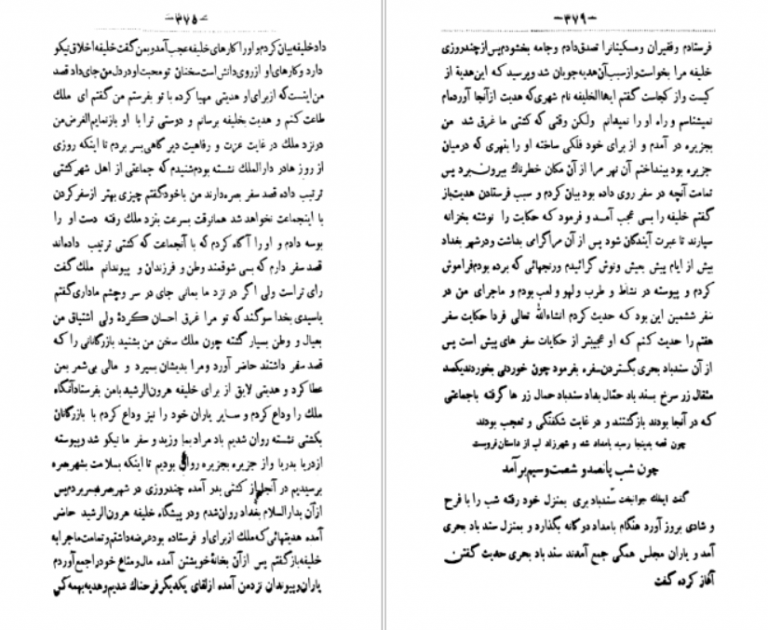 -۳۷۵-
داد خلیفه بیان کردم و او را کارهای خلیفه عجب آمد و بمن گفت خلیفه اخلاق نیکو
دارد و کارهای او از روی دانش است سخنان تو محبت او در دل من جای داد قصد
من اینست که از برای او هدیتی مهیا کرده با تو بفرستم من گفتم ای ملک
طاعت کنم و هدیت بخلیفه برسانم و دوستی ترا با او باز نمایم الغرض من
در نزد ملک در غایت عزت و رفاهیت دیر گاهی بسر بردم تا اینکه روزی
از روز ها در دار الملک نشسته بودم شنیدم که جماعتی از اهل شهر کشتی
ترتیب داده قصد سفر بصره دارند من با خود گفتم چیزی بهتر از سفر کردن
با اینجماعت نخواهد شد همانوقت بسرعت بنزد ملک رفته دست او را
بوسه دادم و او را آگاه کردم که با آنجماعت که کشتی ترتیب داده‌اند
قصد سفر دارم که بسی شوقمند وطن و فرزندان و پیوندانم ملک گفت
رای تراست ولی اگر در نزد ما بمانی جای در سر و چشم ما داری گفتم
یاسیدی بخدا سوگند که تو مرا غرق احسان کردهٔ ولی اشتیاق من
بعیال و وطن بسیار گشته چون ملک سخن من بشنید بازرگانانی را که
قصد سفر داشتند حاضر آورد و مرا بدیشان بسپرد و مالی بی شمر بمن
عطا کرد و هدیتی لایق از برای خلیفه هرون الرشید با من بفرستاد آنگاه
ملک را وداع کردم و سایر یاران خود را نیز وداع کردم با بازرگانان
بکشتی نشسته روان شدیم باد مراد بما وزید و سفر ما نیکو شد و پیوسته
از دریا بدریا و از جزیره بجزیره روان بودیم تا اینکه بسلامت بشهر بصره
برسیدیم در آنجا از کشتی بدر آمده چندروزی در شهر بصره بسر بردم پس
از آن بدار السلام بغداد روان شدم و در پیشگاه خلیفه هرون الرشید حاضر
آمده هدیتهائی که ملک از برای او فرستاده بود عرضه داشتم و تمامت ماجرا به
خلیفه باز گفتم پس از آن بخانهٔ خویشتن آمده مال و متاع خود را جمع آوردم
یاران و پیوندان نزد من آمده از لقای یکدیگر فرحناک شدیم و هدیه بهمه کس
-۳۷۹-
فرستادم و فقیران و مسکینان را تصدق دادم و جامه بخشودم پس از چند روزی
خلیفه مرا بخواست و از سبب آن هدیه جویان شد و پرسید که این هدیة از
کیست و از کجاست گفتم ایها الخلیفه نام شهری که هدیت از آنجا آورده‌ام
نمیشناسم و راه او را نمیدانم ولکن وقتی که کشتی ما غرق شد من
بجزیره در آمدم و از برای خود فلکی ساخته او را بنهری که در میان
جزیره بود بینداختم آن نهر مرا از آن مکان خطرناک بیرون برد پس
تمامت آنچه در سفر روی داده بود بیان کردم و سبب فرستادن هدیت باز
گفتم خلیفه را بسی عجب آمد و فرمود که حکایت را نوشته بخزانه
سپارند تا عبرت آیندگان شود پس از آن مرا گرامی بداشت و در شهر بغداد
بیش از ایام پیش بعیش و نوش گرائیدم و رنجهائی که برده بودم فراموش
کردم و پیوسته در نشاط و طرب و لهو و لعب بودم و ماجرای من در
سفر ششمین این بود که حدیث کردم انشاءالله تعالی فردا حکایت سفر
هفتم را حدیث کنم که او عجیبتر از حکایات سفر های پیش است پس
از آن سندباد بحری بگستردن سفره بفرمود چون خوردنی بخوردند یکصد
مثقال زر سرخ بسند باد حمّال بداد سندباد حمال زر ها گرفته با جماعتی
که در آنجا بودند بازگشتند و در غایت شگفتگی و تعجب بودند
چون قصه بدینجا رسید بامداد شد و شهرزاد لب از داستان فروبست
چون شب پانصد و شصت و سیم بر آمد
گفت ایملک جوانبخت سندباد بری بمنزل خود رفته شب را با فرح
و شادی بروز آورد هنگام بامداد دوگانه بگذارد و بمنزل سند باد بحری
آمد و یاران مجلس همگی جمع آمدند سند باد بحری حدیث گفتن
آغاز کرده گفت